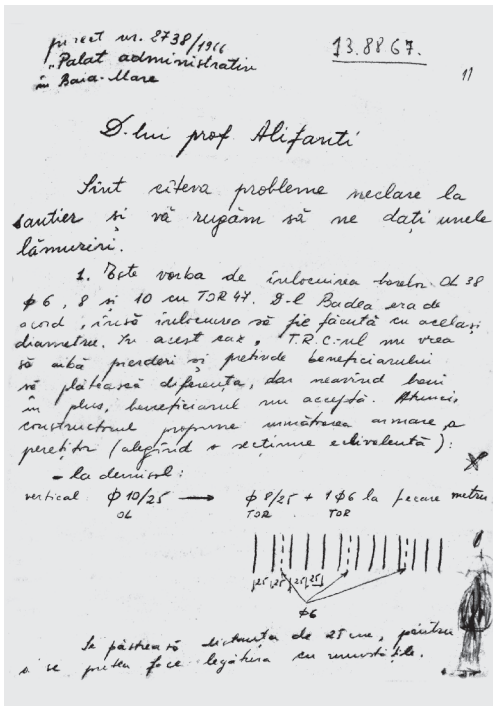 proiect nr. 2738/1966
13.88 67.
"Palat administrativ
în Baia-Mare
11
D-lui prof Alifanti
Sînt cîteva probleme neclare la
santier și vă rugăm să ne dați unele
lămuriri.
1. Este vorba de înlocuirea barelor OL 38
φ 6, 8 si 10 cu TOR 47. D-l Badea era de
acord, însă înlocuirea să fie făcută cu același
diametru. In acest caz, T.R.C.-ul nu vrea
să aibă pierderi și pretinde beneficiarului
să plătească diferența, dar neavînd bani
în plus, beneficiarul nu acceptă. Atunci,
constructorul propune următoarea armare a
pereților (alegînd o secțiune echivalentă):
- la demisol:
vertical φ 10/25 → φ 8/25 + 1 φ6 la fiecare metru
OL TOR TOR
25 25 25 25
φ6
Se păstrează distanța de 25 cm, pentru
a se putea face legătura cu mustățile.